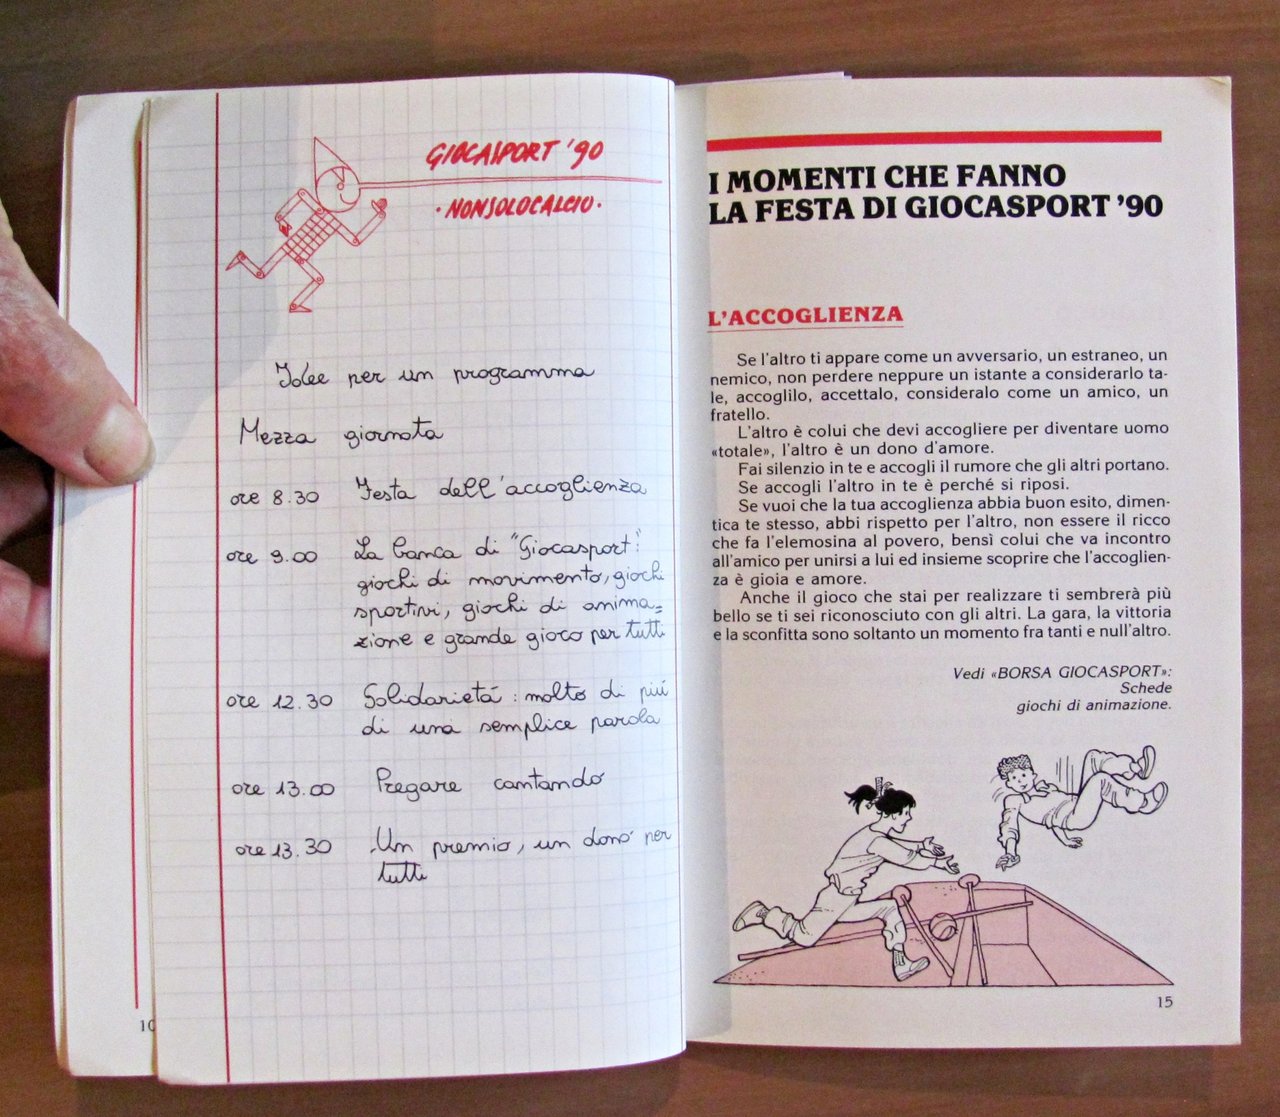 GIOCASPORT '90
· NONSOLOCALCIO ·
Idee per un programma
Mezza giornata
ore 8.30 Festa dell'accoglienza
ore 9.00 La banca di "Giocasport":
giochi di movimento, giochi
sportivi, giochi di anima=
zione e grande gioco per tutti
ore 12.30 Solidarietá: molto di piú
di una semplice parola
ore 13.00 Pregare cantando
ore 13.30 Un premio, un dono per
tutti
10
I MOMENTI CHE FANNO
LA FESTA DI GIOCASPORT '90
L'ACCOGLIENZA
Se l'altro ti appare come un avversario, un estraneo, un
nemico, non perdere neppure un istante a considerarlo ta-
le, accoglilo, accettalo, consideralo come un amico, un
fratello.
L'altro è colui che devi accogliere per diventare uomo
«totale», l'altro è un dono d'amore.
Fai silenzio in te e accogli il rumore che gli altri portano.
Se accogli l'altro in te è perché si riposi.
Se vuoi che la tua accoglienza abbia buon esito, dimen-
tica te stesso, abbi rispetto per l'altro, non essere il ricco
che fa l'elemosina al povero, bensì colui che va incontro
all'amico per unirsi a lui ed insieme scoprire che l'accoglien-
za è gioia e amore.
Anche il gioco che stai per realizzare ti sembrerà più
bello se ti sei riconosciuto con gli altri. La gara, la vittoria
e la sconfitta sono soltanto un momento fra tanti e null'altro.
Vedi «BORSA GIOCASPORT»:
Schede
giochi di animazione.
15